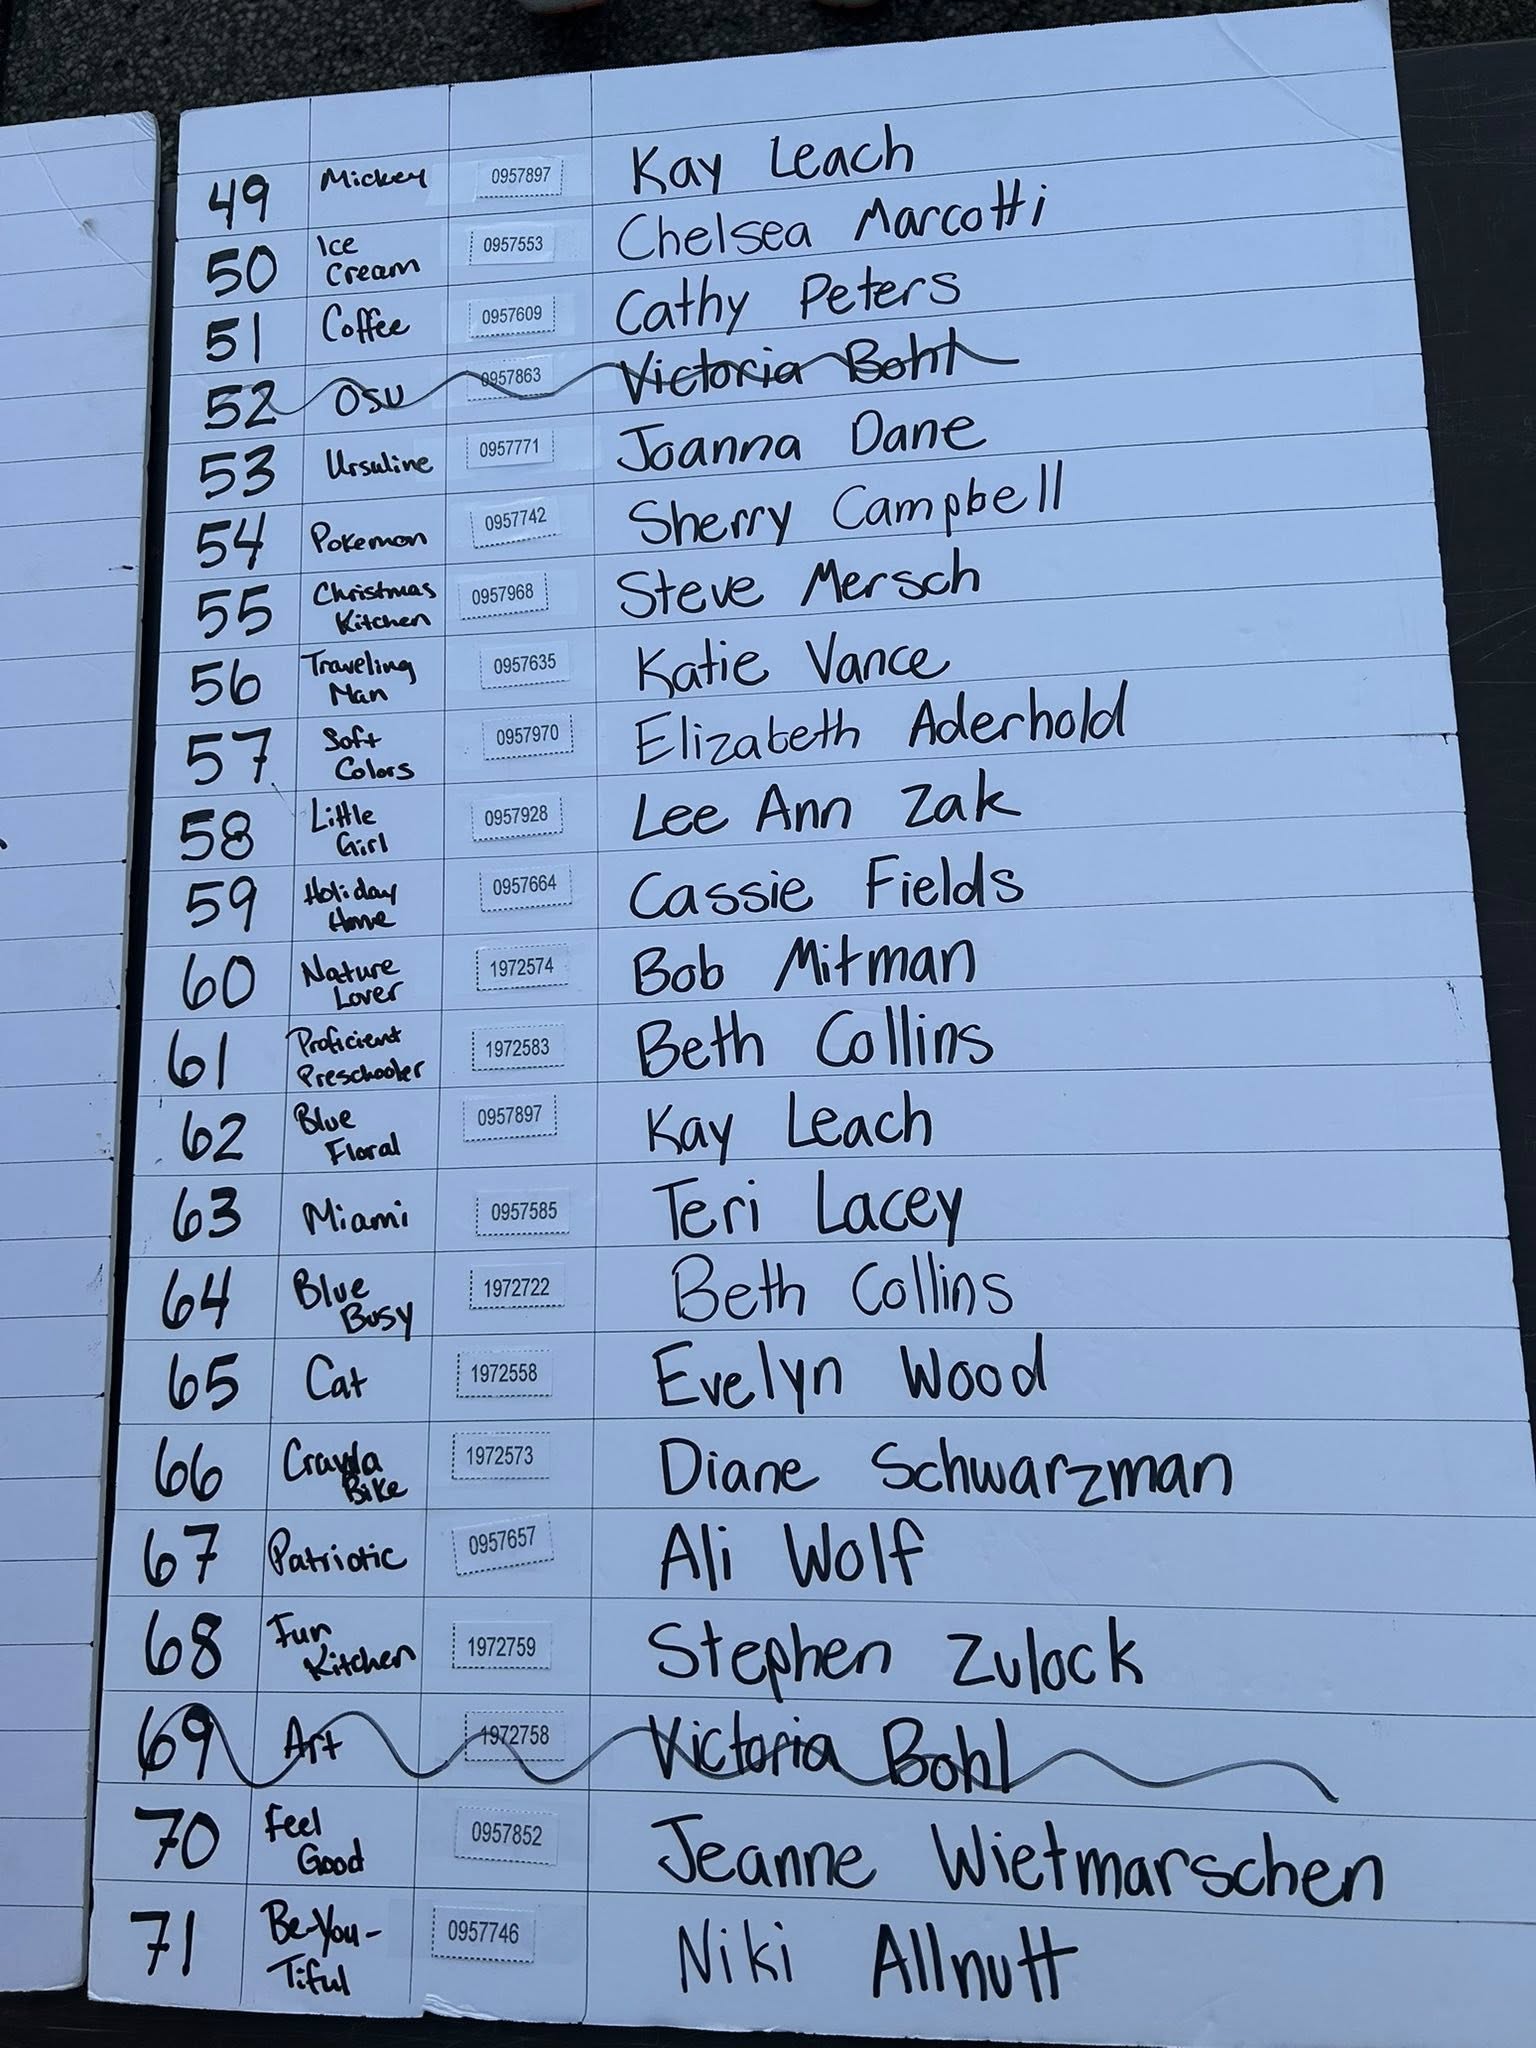 49 Mickey 0957897 Kay Leach
50 Ice Cream 0957553 Chelsea Marcotti
51 Coffee 0957609 Cathy Peters
52 OSU 0957863 Victoria Bohl
53 Ursuline 0957771 Joanna Dane
54 Pokemon 0957742 Sherry Campbell
55 Christmas Kitchen 0957968 Steve Mersch
56 Traveling Man 0957635 Katie Vance
57 Soft Colors 0957970 Elizabeth Aderhold
58 Little Girl 0957928 Lee Ann Zak
59 Holiday Home 0957664 Cassie Fields
60 Nature Lover 1972574 Bob Mitman
61 Proficient Preschooler 1972583 Beth Collins
62 Blue Floral 0957897 Kay Leach
63 Miami 0957585 Teri Lacey
64 Blue Busy 1972722 Beth Collins
65 Cat 1972558 Evelyn Wood
66 Crayola Bike 1972573 Diane Schwarzman
67 Patriotic 0957657 Ali Wolf
68 Fun Kitchen 1972759 Stephen Zulock
69 Art 1972758 Victoria Bohl
70 Feel Good 0957852 Jeanne Wietmarschen
71 Be-You-Tiful 0957746 Niki Allnutt